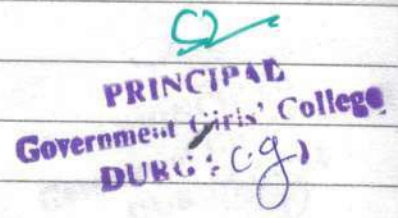 PRINCIPAL
Government Girls' College
DURG (C.G.)